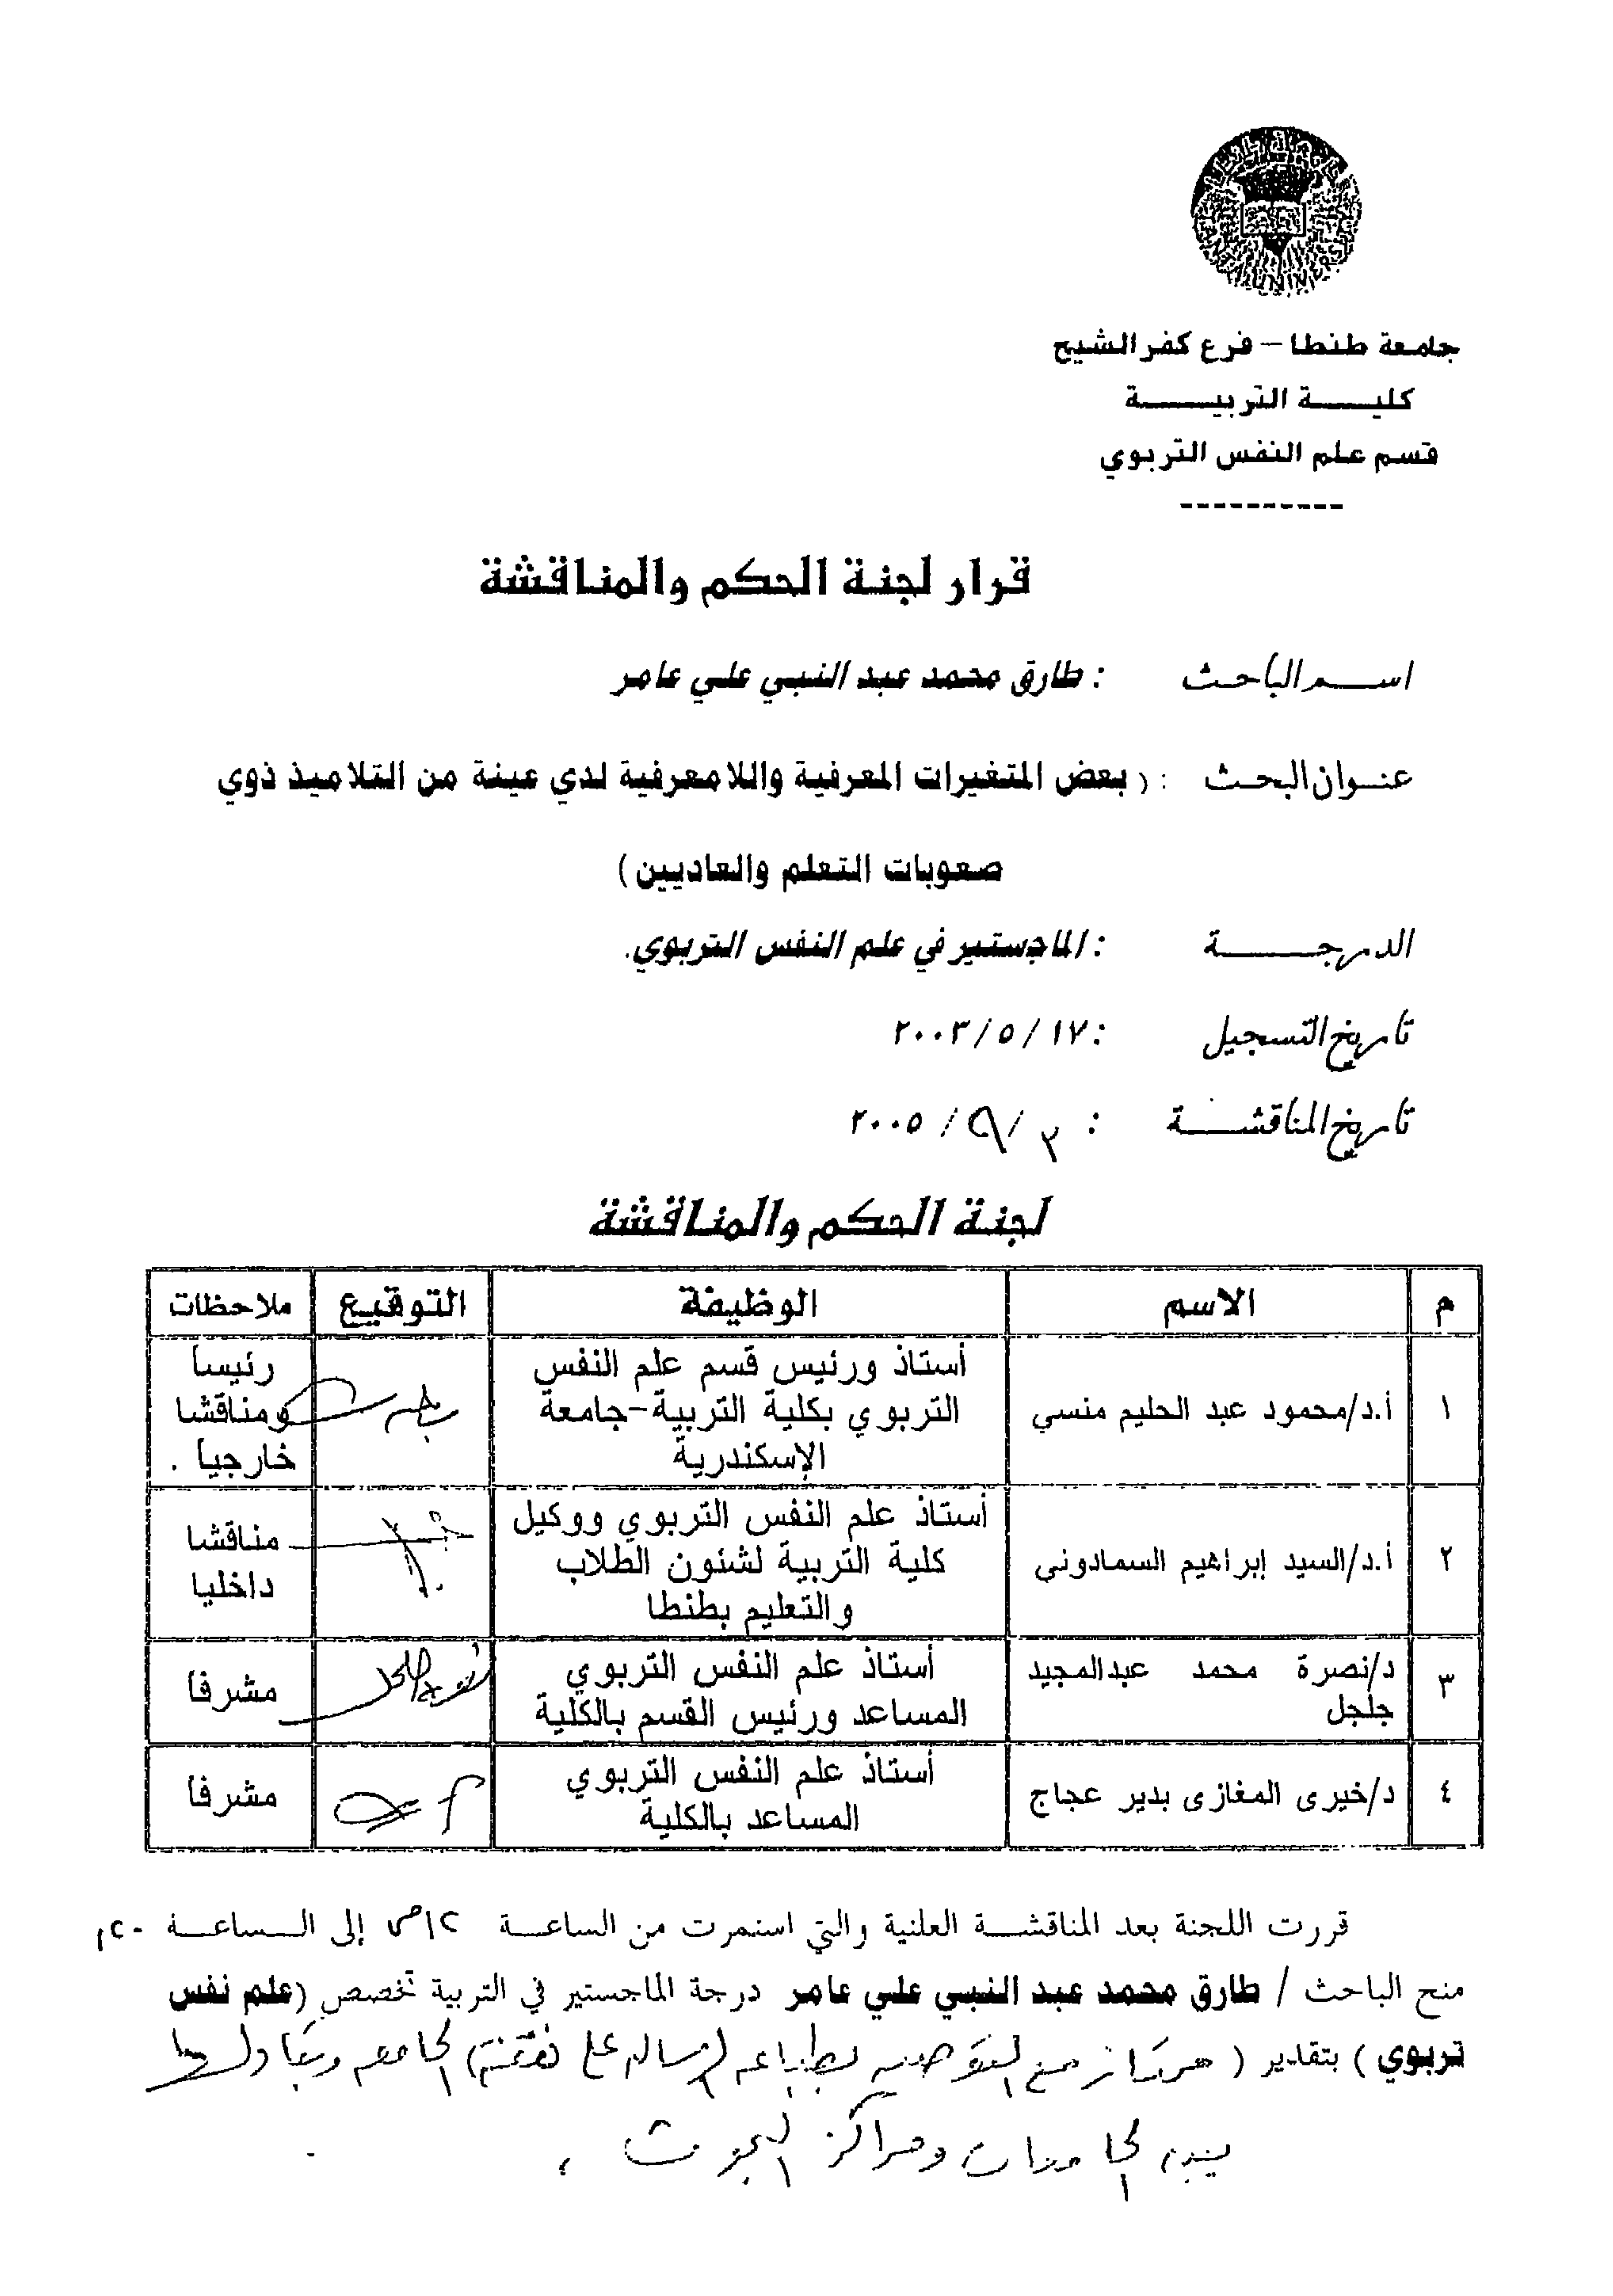 جامعة طنطا – فرع كفر الشيخ
كليـــة التربيـــة
قسم علم النفس التربوي
----------
قرار لجنة الحكم والمناقشة
اســم الباحث : طارق محمد عبد النبي علي عامر
عنـوان البحث : ( بعض المتغيرات المعرفية واللامعرفية لدي عينة من التلاميذ ذوي
صعوبات التعلم والعاديين )
الدرجـــة : الماجستير في علم النفس التربوي.
تاريخ التسجيل : ١٧ / ٥ / ٢٠٠٣
تاريخ المناقشــة : / / ٢٠٠٥
لجنة الحكم والمناقشة
م الاسم الوظيفة التوقيع ملاحظات
١ أ.د/محمود عبد الحليم منسي أستاذ ورئيس قسم علم النفس التربوي بكلية التربية-جامعة الإسكندرية رئيسا ومناقشا خارجيا .
٢ أ.د/السيد إبراهيم السمادونى أستاذ علم النفس التربوي ووكيل كلية التربية لشئون الطلاب والتعليم بطنطا مناقشا داخليا
٣ د/نصرة محمد عبدالمجيد جلجل أستاذ علم النفس التربوي المساعد ورئيس القسم بالكلية مشرفا
٤ د/خيرى المغازى بدير عجاج أستاذ علم النفس التربوي المساعد بالكلية مشرفا
قررت اللجنة بعد المناقشـة العلنية والتي استمرت من الساعـة ١٢ص إلى الـساعـة
منح الباحث / طارق محمد عبد النبي علي عامر درجة الماجستير في التربية تخصص (علم نفس
تربوي ) بتقدير ( ممتاز مع التوصية بطباعة الرسالة على نفقة ) الجامعة وتبادلها
بين الجامعات ومراكز البحوث .